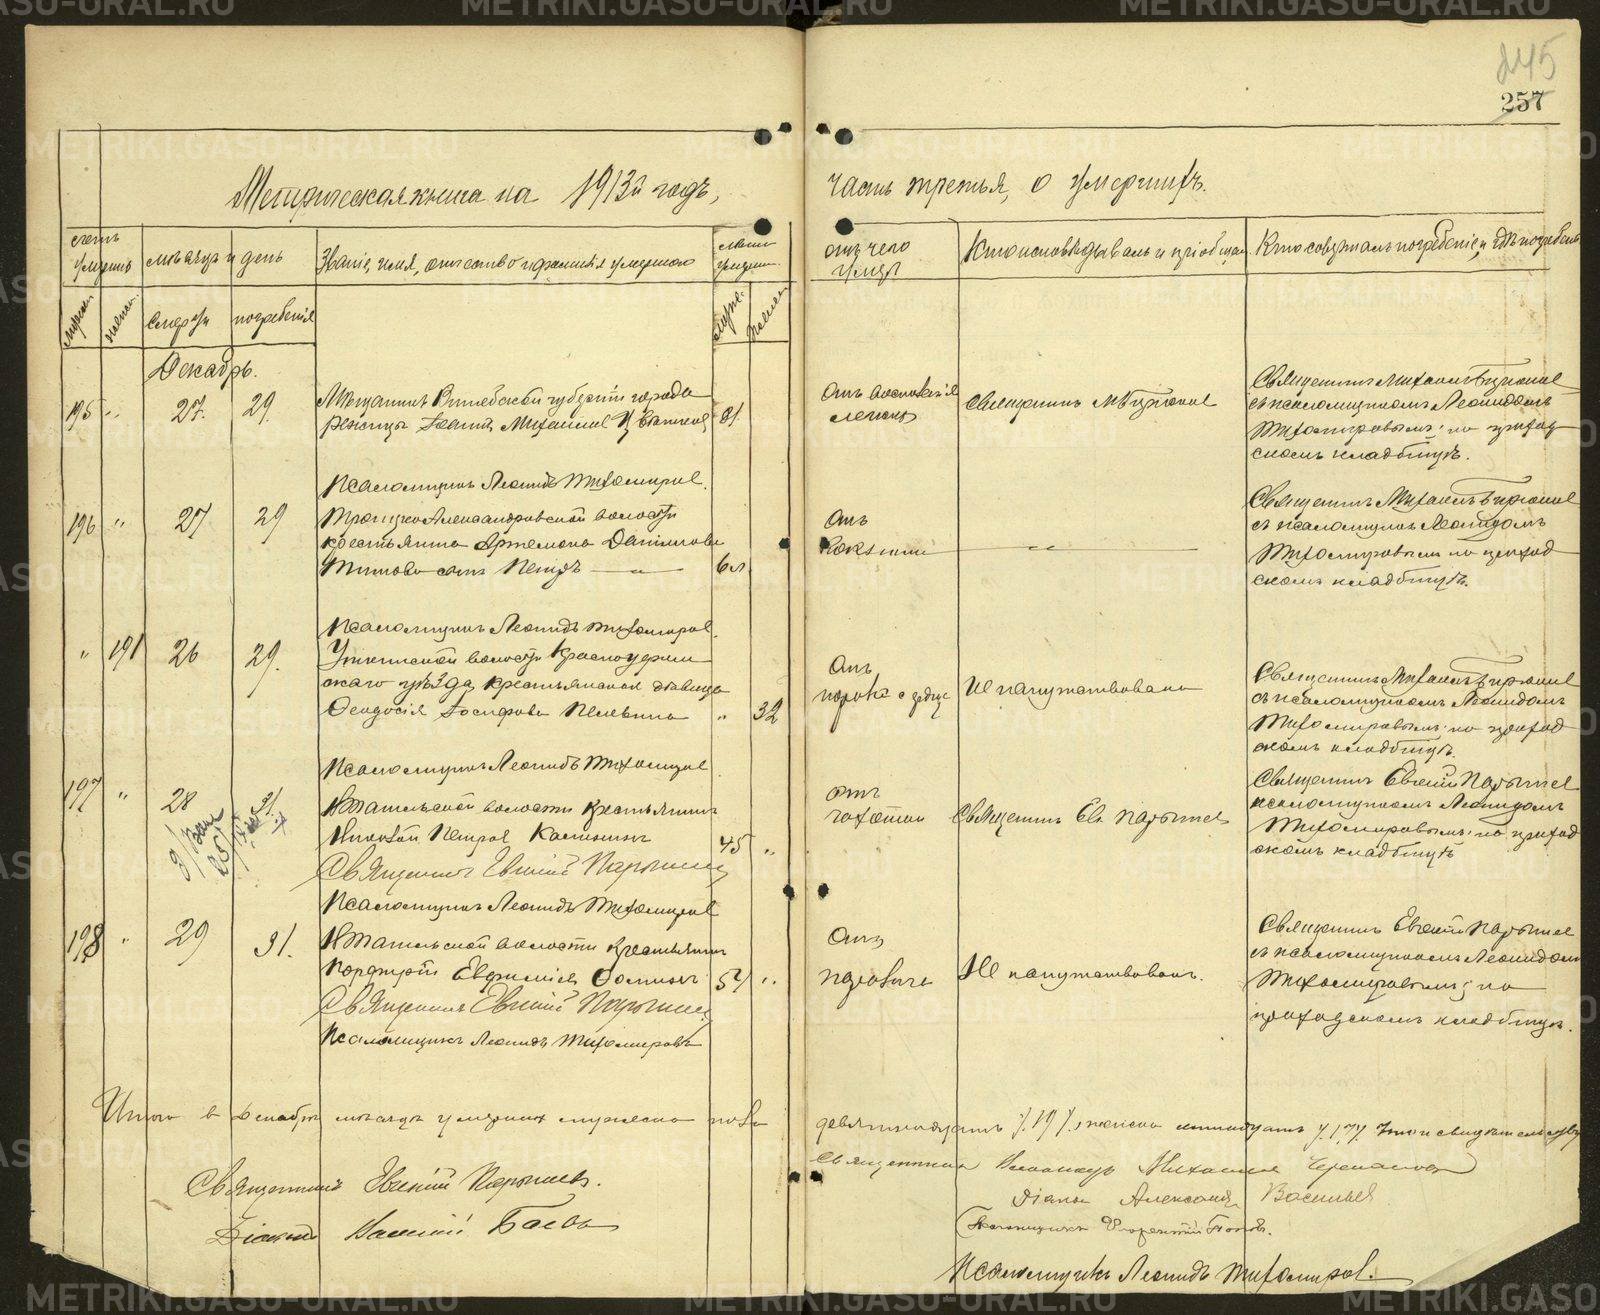 245
257
Метрическая книга на 1913й годъ,
часть третья, о умершихъ.
счетъ умершихъ
мѣсяцъ и день
Званіе, имя, отчество и фамилія умершаго
лѣта умерши
отъ чего умеръ
Кто исповѣдывалъ и пріобщалъ
Кто совершалъ погребеніе и гдѣ погребены
смерти
погребенія
Декабрь.
195 " 27. 29.
Мѣщанинъ Витебской губерніи города
Режицы Іоаннъ Михаиловъ
81
Отъ воспаленія
легкихъ
Священникъ М.
Священникъ Михаилъ
съ псаломщикомъ Леонидомъ
Тихомировымъ; на приход
скомъ кладбищѣ.
Псаломщикъ Леонидъ Тихомировъ.
196 " 27 29
Троицко Александровской волости
крестьянина Артемона Данилова
Титова сынъ Петръ
6 л.
Отъ
Коклюша
Священникъ Михаилъ
съ псаломщикомъ Леонидомъ
Тихомировымъ на приход
скомъ кладбищѣ.
Псаломщикъ Леонидъ Тихомировъ.
" 191 26 29.
волости Красноуфим
скаго уѣзда, крестьянская дѣвица
Феодосія Іосифова
" 32
Отъ
порока сердца
Не напутствована
Священникъ Михаилъ
съ псаломщикомъ Леонидомъ
Тихомировымъ; на приход
скомъ кладбищѣ.
Псаломщикъ Леонидъ Тихомировъ
197 " 28 31.
Н Тагильской волости крестьянинъ
Николай Петровъ
45 "
отъ
чахотки
Священникъ Ев. Парышев
Священникъ Евгеній Парышев
псаломщикомъ Леонидомъ
Тихомировымъ; на приход
скомъ кладбищѣ
Священникъ Евгеній Парышев
Псаломщикъ Леонидъ Тихомировъ
198 " 29 31.
Н Тагильской волости крестьянинъ
Порфирій Евфиміев
54 "
Отъ
Не напутствованъ.
Священникъ Евгеній Парышев
съ псаломщикомъ Леонидом
Тихомировымъ; на
приходскомъ кладбищѣ.
Священникъ Евгеній Парышев
Псаломщикъ Леонидъ Тихомировъ
Итого в Декабрѣ мѣсяцѣ умершихъ мужеска пола
девятнадцать /.19/., женска семнадцать /.17/.
Священникъ Евгеній Парышев.
Діаконъ Василій
Священник Михаилъ
Діакон Александр Васильев
Псаломщикъ Флорентій Попов.
Псаломщикъ Леонидъ Тихомиров.
METRIKI.GASO-URAL.RU